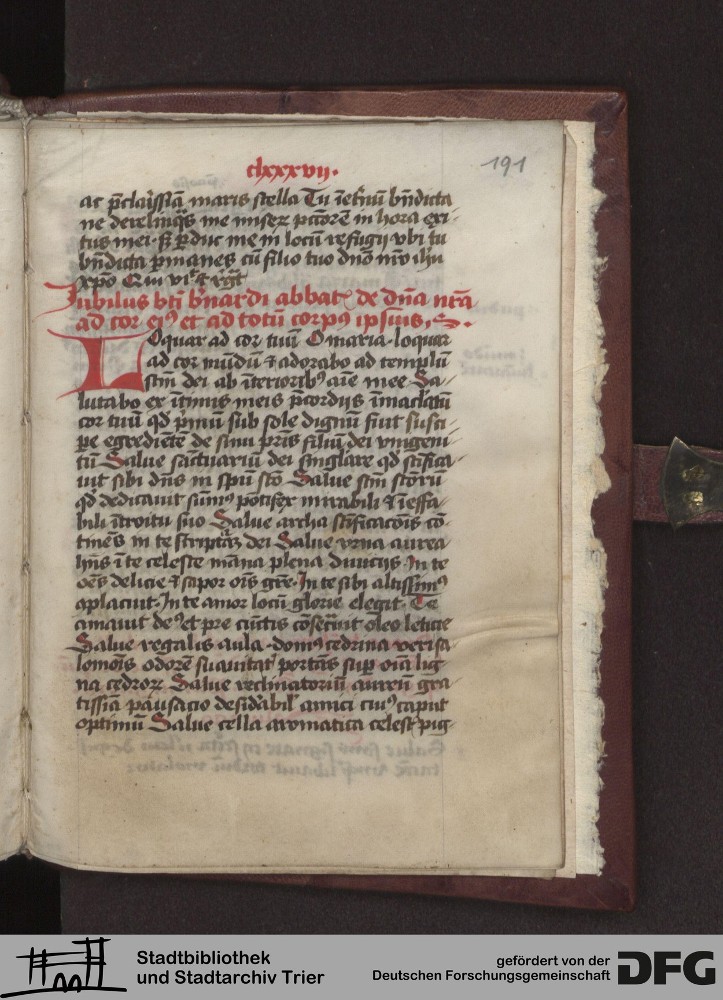 clxxxvij.
191
ac p̄claͥssīa maris stella Tu īet̄nū bn̄dicta
ne derelinq̄s me miseꝝ pctōrē in hora exi-
tus mei. sꝫ ꝑduc me in locū refugij vbi tu
bn̄dicta ꝑmanes cū filio tuo dn̄o nr̄o ihū
xp̄o Qui
Iubilus bt̄i b̄nardi abbatꝭ de dn̄a nr̄a
ad cor eiꝰ et ad totū corpꝰ ipsius.
Loquar ad cor tuū O maria. loquar
ad cor mūdū ⁊ adorabo ad templū
sc̄m dei ab īterioribꝰ aīe mee. Sa-
lutabo ex ītimis meis p̄cordijs īmaclatū
cor tuū qd p̄mū sub sole dignū fuit susci-
pe egrediētē de sinu pr̄is filiū dei vnigeni-
tū Salue sāctuariū dei singlare qd sc̄ifica-
uit sibi dn̄s in spū sc̄o Salue sc̄m sc̄orū
qd dedicauit sūmꝰ pōtifex mirabili ⁊ īeffa-
bili ītroitu suo Salue archa sc̄ificacōis cō-
tinēs in te scripturā dei Salue vrna aurea
hn̄s ī te celeste māna plena diuicijs. In te
oēs delicie ⁊ sapor oīs gr̄e. In te sibi altissimꝰ
cōplacuit. In te amor locū glorie elegit. Te
amauit deꝰ et pre cūctis cōsecͣuit oleo leticie
Salue regalis aula. domꝰ cedrina veri sa-
lomōis odorē suauitatꝭ portās suꝑ oīa lig-
na cedroꝝ Salue reclinatoriū aureū gra-
tissīa pausacio desid̓abilꝭ amici cuiꝰ caput
optimū Salue cella aromatica celestꝭ pig-
Stadtbibliothek
und Stadtarchiv Trier
gefördert von der
Deutschen Forschungsgemeinschaft
DFG